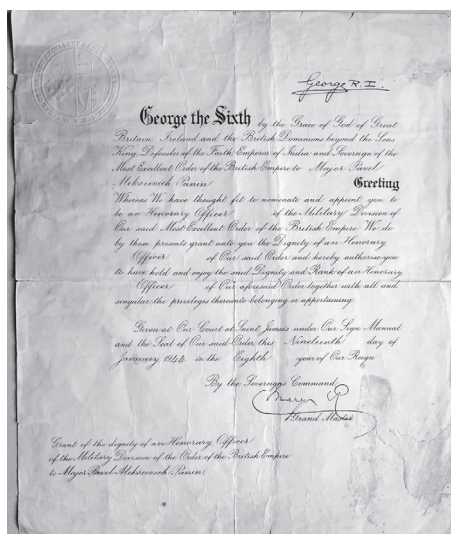 George R.I.
George the Sixth by the Grace of God of Great
Britain, Ireland and the British Dominions beyond the Seas
King, Defender of the Faith, Emperor of India and Sovereign of the
Most Excellent Order of the British Empire to Major Pavel
Alekseevich Panin
Greeting
Whereas We have thought fit to nominate and appoint you to
be an Honorary Officer of the Military Division of
Our said Most Excellent Order of the British Empire We do
by these presents grant unto you the Dignity of an Honorary
Officer of Our said Order and hereby authorise you
to have hold and enjoy the said Dignity and Rank of an Honorary
Officer of Our aforesaid Order together with all and
singular the privileges thereunto belonging or appertaining.
Given at Our Court at Saint James's under Our Sign Manual
and the Seal of Our said Order this Nineteenth day of
January 1944 in the Eighth year of Our Reign
By the Sovereign's Command
Mary R
Grand Master
Grant of the dignity of an Honorary Officer
of the Military Division of the Order of the British Empire
to Major Pavel Alekseevich Panin.